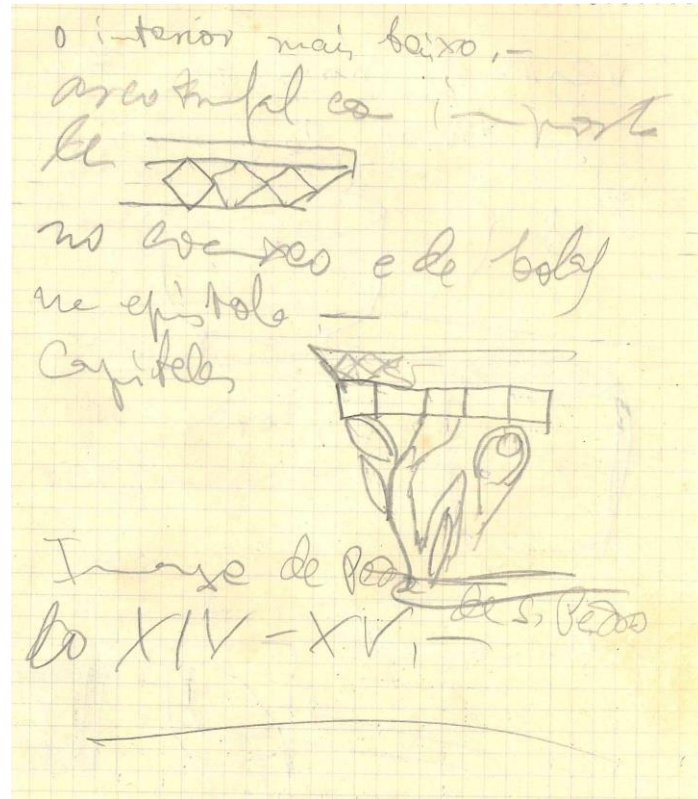 o interior mais baixo. —
arco trunfal co imposta
de
no evanxeo e de bolas
na epistola —
Capiteles
Imaxe de Pedra de S. Pedro
do XIV – XV. —